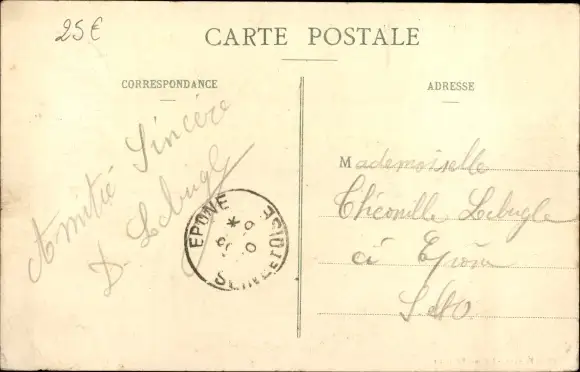 25€
CARTE POSTALE
CORRESPONDANCE
ADRESSE
Amitié Sincère
D. Lebugle
EPONE
SEINE-ET-OISE
Mademoiselle
Lebugle
à Epône
S&O